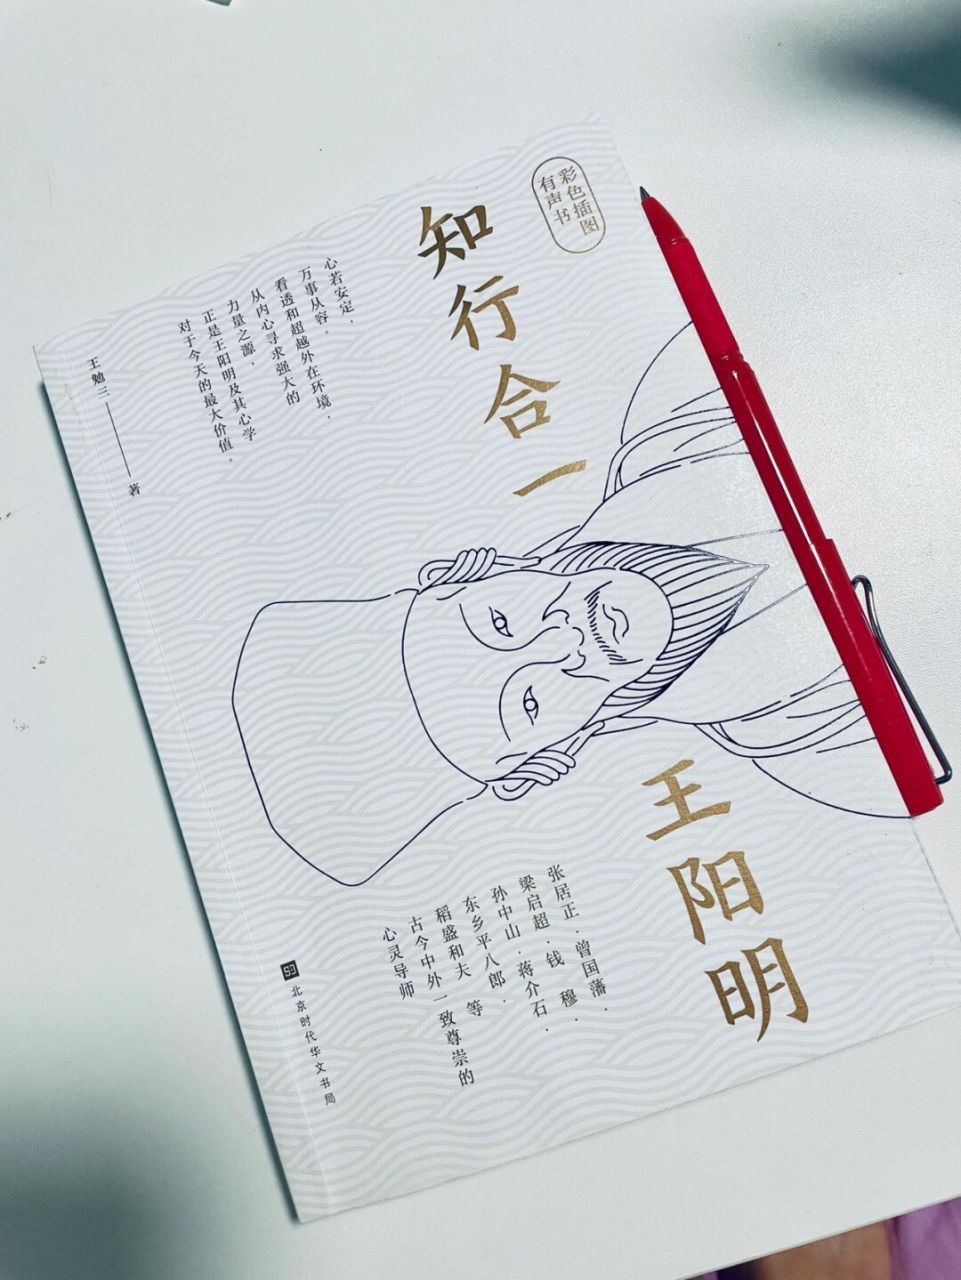 彩色插图
有声书
知行合一
王阳明
心若安定、
万事从容。
看透和超越外在环境、
从内心寻求强大的
力量之源，
正是王阳明及其心学
对于今天的最大价值。
王勉三——著
张居正．曾国藩．
梁启超．钱 穆．
孙中山．蒋介石．
东乡平八郎．
稻盛和夫 等
古今中外一致尊崇的
心灵导师
北京时代华文书局